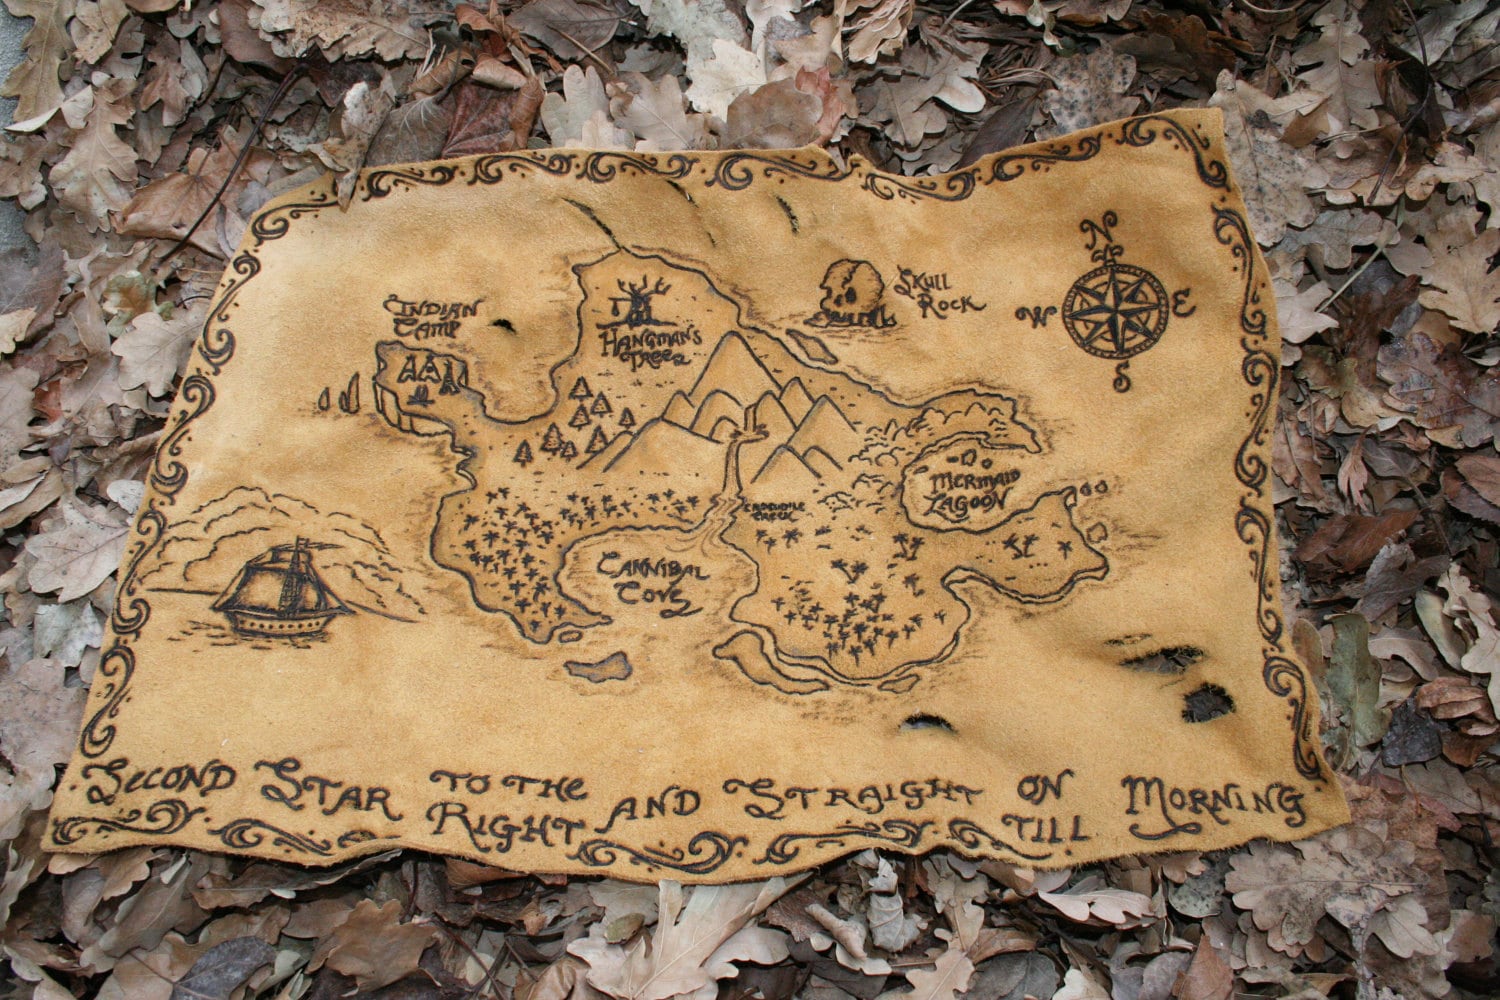 N
W
E
S
Skull
Rock
Indian
Camp
Hangman's
Tree
Mermaid
Lagoon
Crocodile
Creek
Cannibal
Cove
Second Star to the
Right and Straight on
till Morning